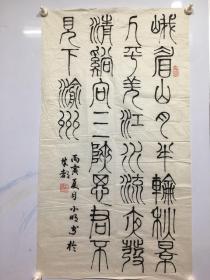 峨眉山月半輪秋景
入平羌江水流夜發
清谿向三陝思君不
見下渝州
丙寅夏月小明书於